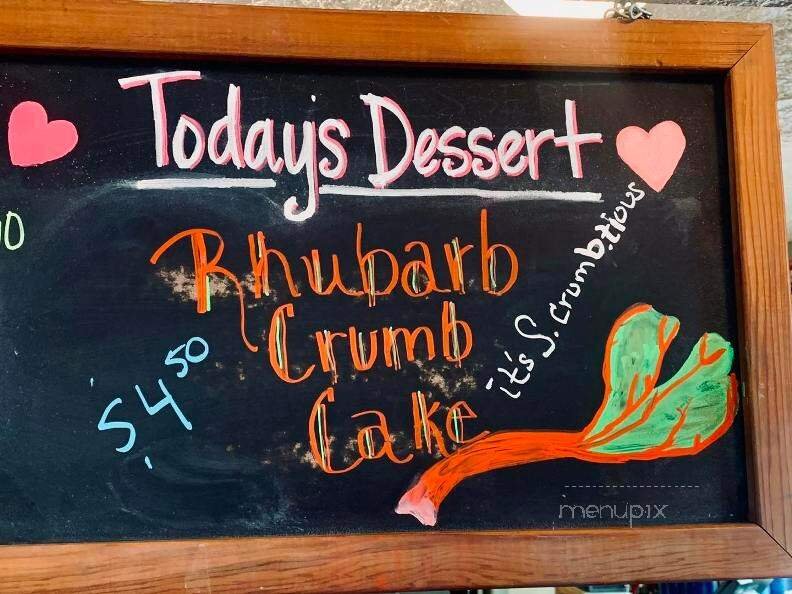 Today's Dessert
Rhubarb
Crumb
Cake
$4.50
it's S. crumb.tious
menupix